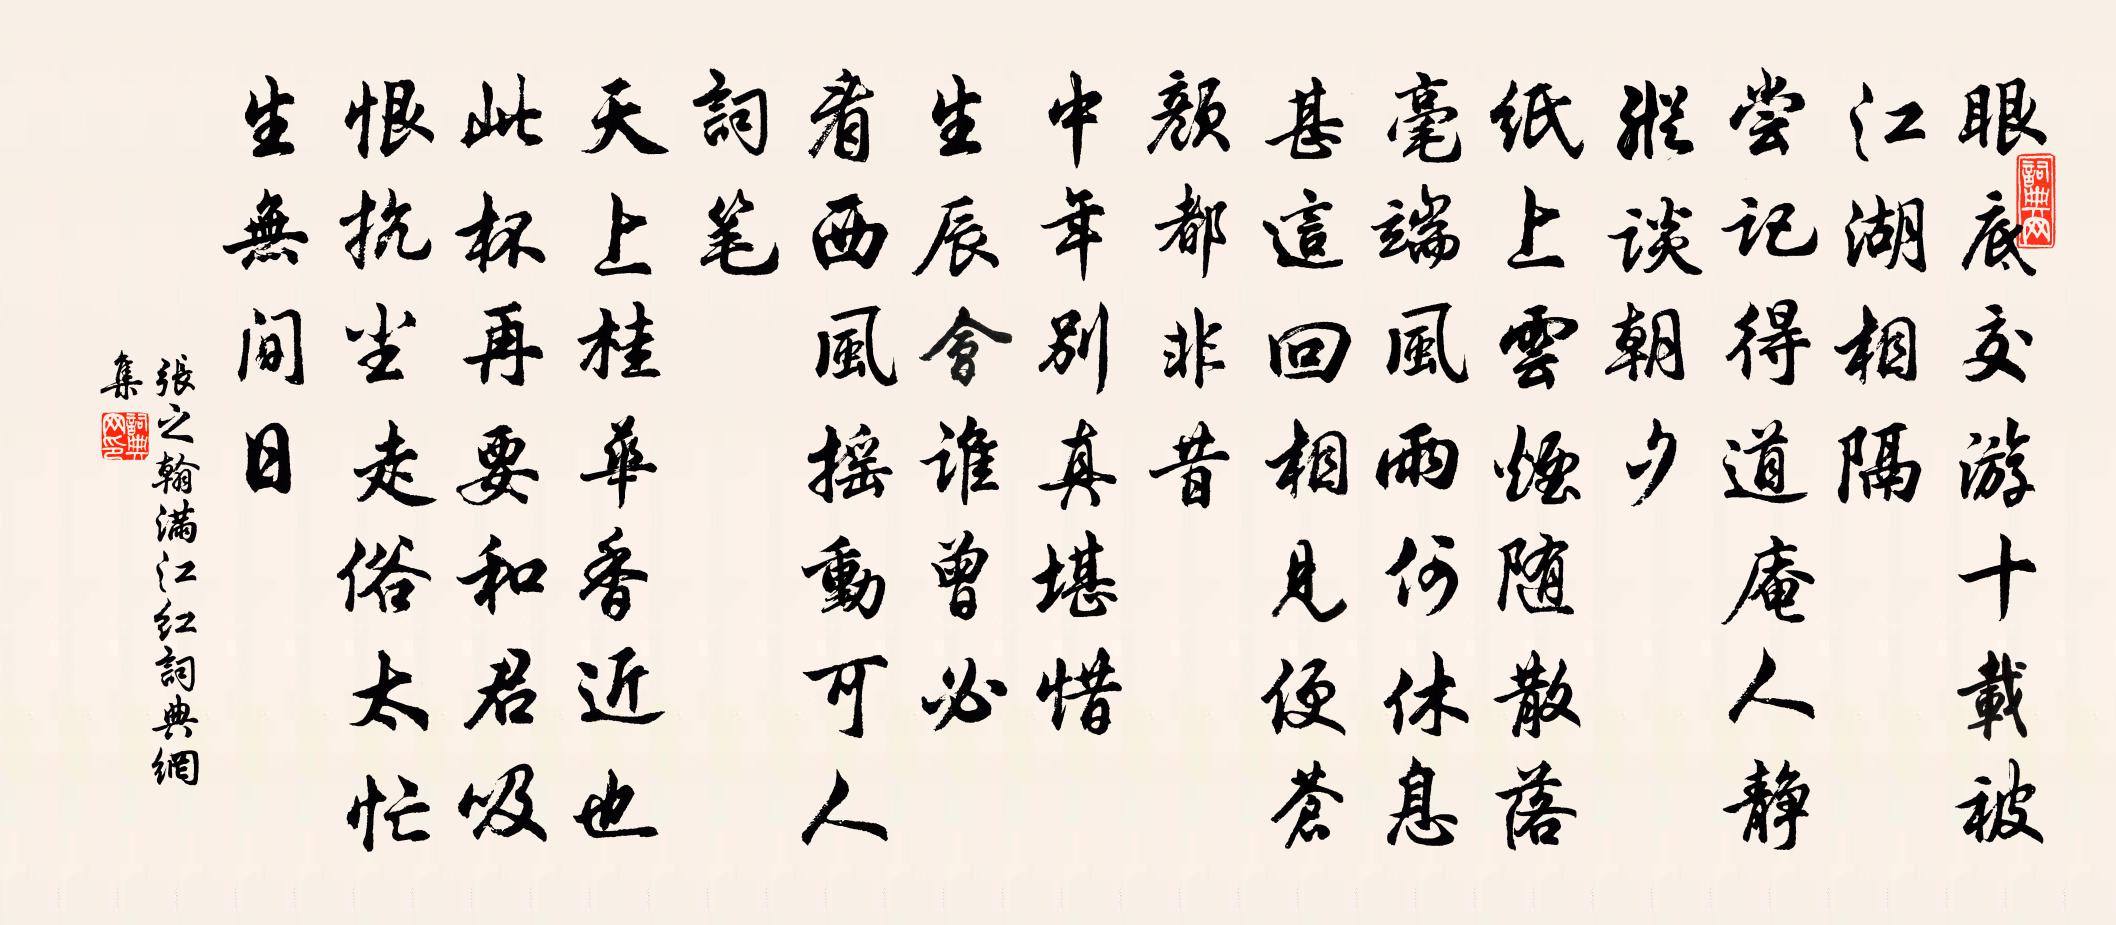 眼底交游十載被
江湖相隔
尝記得道庵人静
縱談朝夕
纸上雲煙随散落
毫端風雨何休息
甚這回相見便蒼
顏都非昔
中年别真堪惜
生辰會誰曾必
看西風摇動可人
詞笔
天上桂華香近也
此杯再要和君吸
恨抗尘走俗太忙
生無间日
張之翰满江红詞典網
集
詞典网
詞典网印